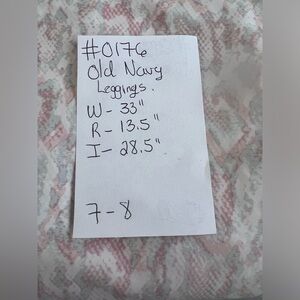 #0176
Old Navy
Leggings.
W - 33"
R - 13.5"
I - 28.5"
7-8